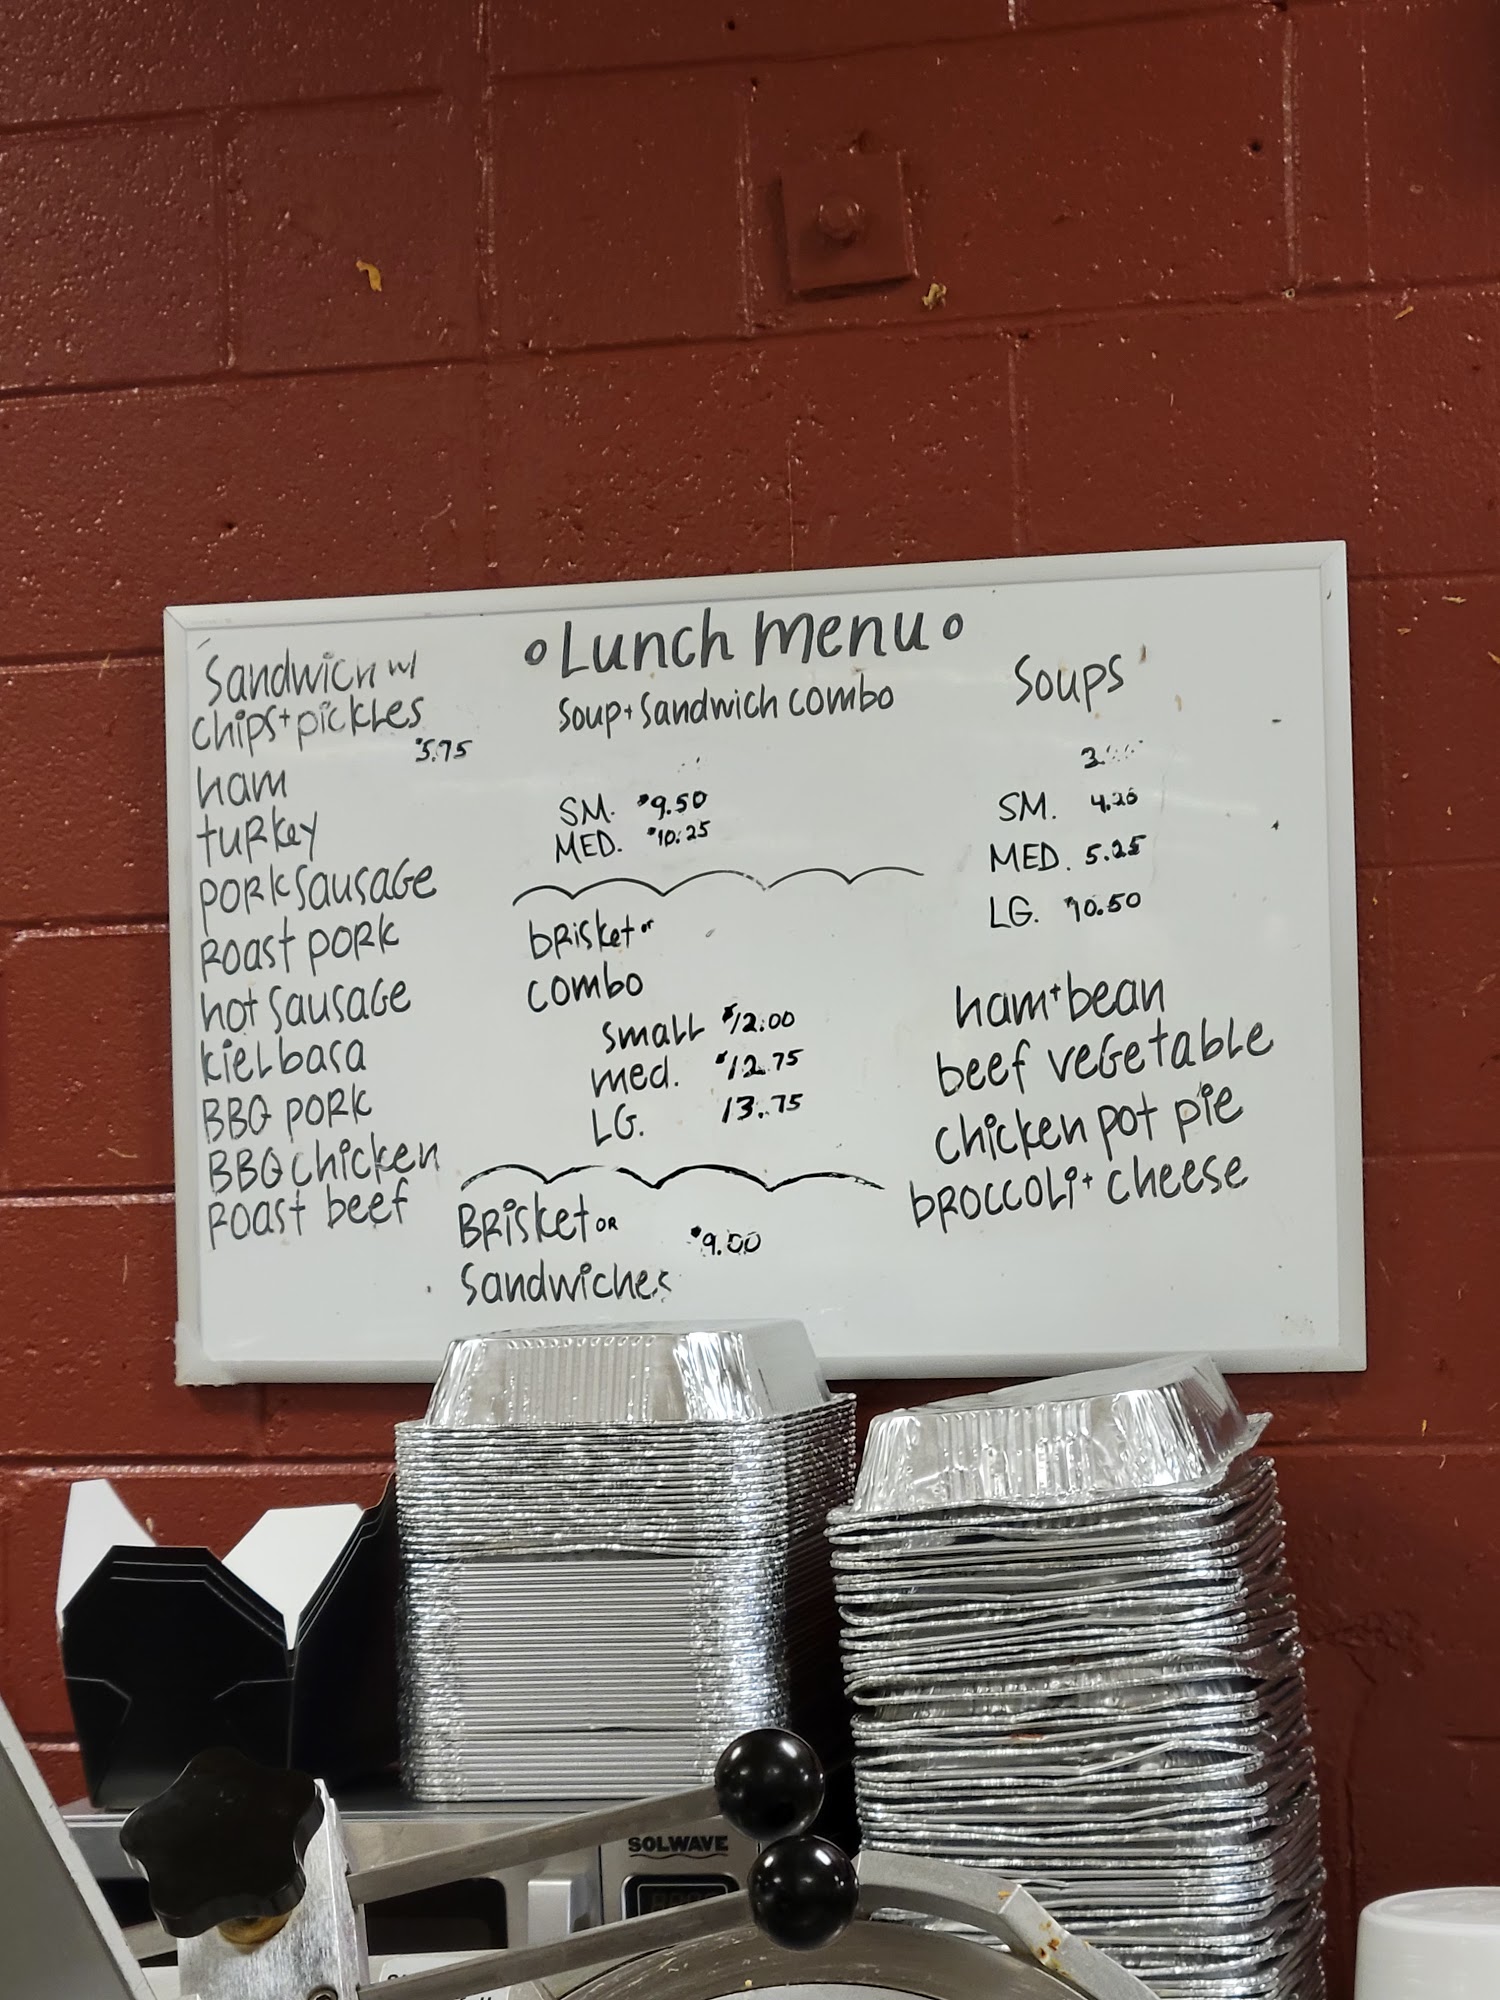 Sandwich w/
chips + pickles
$5.75
ham
turkey
pork sausage
roast pork
hot sausage
kielbasa
BBQ pork
BBQ chicken
roast beef
Lunch menu
Soup + Sandwich combo
SM. $9.50
MED. $10.25
brisket or
combo
small $12.00
med. $12.75
LG. 13.75
Brisket OR
Sandwiches
$9.00
Soups
SM. 4.25
MED. 5.25
LG. $10.50
ham + bean
beef vegetable
chicken pot pie
broccoli + cheese
SOLWAVE